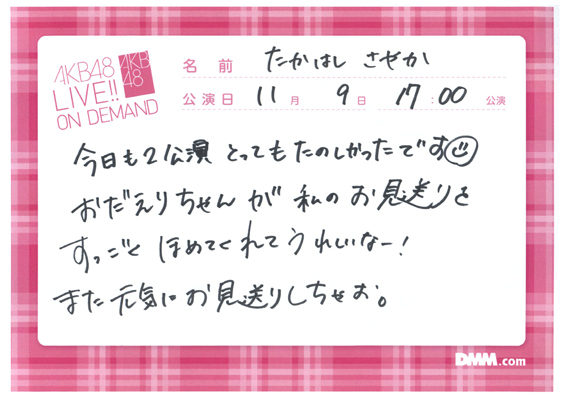 AKB48
LIVE!!
ON DEMAND
AKB
48
名前 たかはし さやか
公演日 11月 9日 17:00 公演
今日も2公演 とってもたのしかったです
おだえりちゃんが 私のお見送りを
すっごく ほめてくれて うれしいなー!
また元気にお見送りしちゃお。
DMM.com